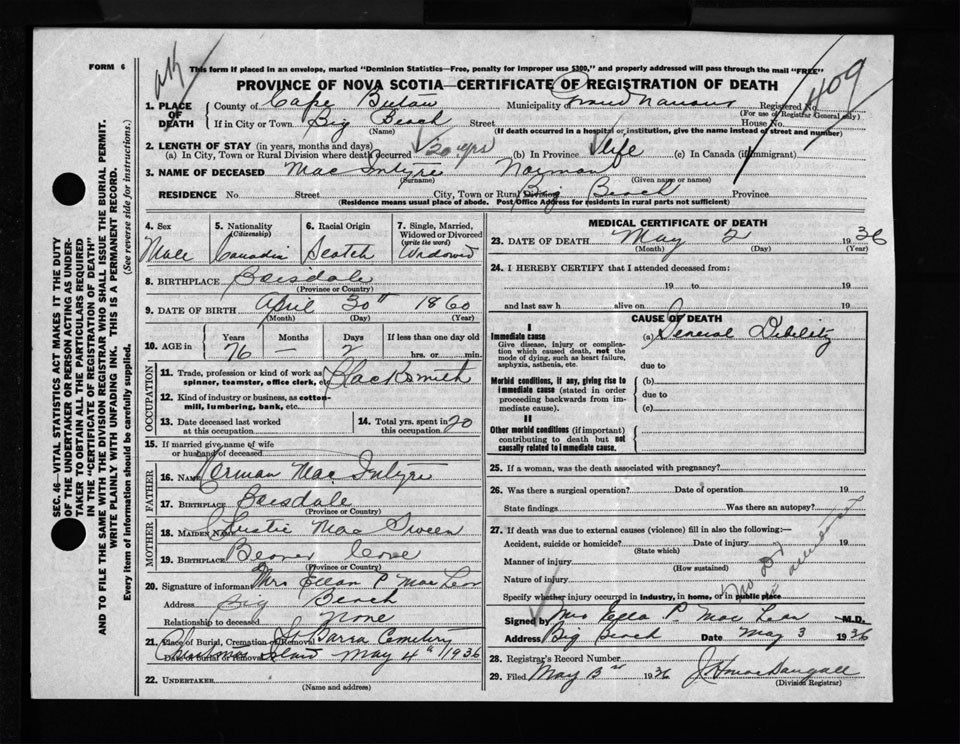 FORM 6
ok
This form if placed in an envelope, marked "Dominion Statistics—Free, penalty for improper use $300," and properly addressed will pass through the mail "FREE"
PROVINCE OF NOVA SCOTIA—CERTIFICATE OF REGISTRATION OF DEATH
409
1. PLACE OF DEATH County of Cape Breton Municipality Grand Narrows Registered No.
(For use of Registrar General only)
If in City or Town Big Beach Street House No.
(Name) (If death occurred in a hospital or institution, give the name instead of street and number)
2. LENGTH OF STAY (in years, months and days)
(a) In City, Town or Rural Division where death occurred 20 yrs (b) In Province life (c) In Canada (if immigrant)
3. NAME OF DECEASED MacIntyre Norman
(Surname) (Given name or names)
RESIDENCE No. Street City, Town or Rural Division Big Beach Province
(Residence means usual place of abode. Post Office Address for residents in rural parts not sufficient)
4. Sex 5. Nationality (Citizenship) 6. Racial Origin 7. Single, Married, Widowed or Divorced (write the word)
Male Canadian Scotch Widowed
8. BIRTHPLACE Boisdale
(Province or Country)
9. DATE OF BIRTH April 30th 1860
(Month) (Day) (Year)
10. AGE in Years Months Days If less than one day old
76 — 2 hrs. or min.
OCCUPATION
11. Trade, profession or kind of work as spinner, teamster, office clerk, etc. Blacksmith
12. Kind of industry or business, as cotton-mill, lumbering, bank, etc.
13. Date deceased last worked at this occupation 14. Total yrs. spent in this occupation 20
15. If married give name of wife or husband of deceased
FATHER
16. NAME Norman MacIntyre
17. BIRTHPLACE Boisdale
(Province or Country)
MOTHER
18. MAIDEN NAME Christie Mac Sween
19. BIRTHPLACE Beaver Cove
(Province or Country)
20. Signature of informant Mrs Ellen P MacLean
Address Big Beach
Relationship to deceased none
21. Place of Burial, Cremation or Removal St Barra Cemetery
Date of Burial or Removal Christmas Island May 4th 1936
22. UNDERTAKER
(Name and address)
MEDICAL CERTIFICATE OF DEATH
23. DATE OF DEATH May 2 1936
(Month) (Day) (Year)
24. I HEREBY CERTIFY that I attended deceased from:
19 to 19
and last saw h alive on 19
CAUSE OF DEATH
I
Immediate cause (a) General Debility
Give disease, injury or complication which caused death, not the mode of dying, such as heart failure, asphyxia, asthenia, etc.
due to
Morbid conditions, if any, giving rise to immediate cause (stated in order proceeding backwards from immediate cause).
(b)
due to
(c)
II
Other morbid conditions (if important) contributing to death but not causally related to immediate cause.
25. If a woman, was the death associated with pregnancy?
26. Was there a surgical operation? Date of operation 19
State findings Was there an autopsy?
27. If death was due to external causes (violence) fill in also the following:—
Accident, suicide or homicide? Date of injury 19
(State which)
Manner of injury
(How sustained)
Nature of injury
Specify whether injury occurred in industry, in home, or in public place
Signed by Mrs Ella P. MacLean M.D.
Address Big Beach Date May 3 1936
28. Registrar's Record Number
29. Filed May 3rd 1936
(Division Registrar)
SEC. 46—VITAL STATISTICS ACT MAKES IT THE DUTY
OF THE UNDERTAKER OR PERSON ACTING AS UNDER-
TAKER TO OBTAIN ALL THE PARTICULARS REQUIRED
IN THE "CERTIFICATE OF REGISTRATION OF DEATH"
AND TO FILE THE SAME WITH THE DIVISION REGISTRAR WHO SHALL ISSUE THE BURIAL PERMIT.
WRITE PLAINLY WITH UNFADING INK. THIS IS A PERMANENT RECORD.
Every item of information should be carefully supplied. (See reverse side for instructions.)